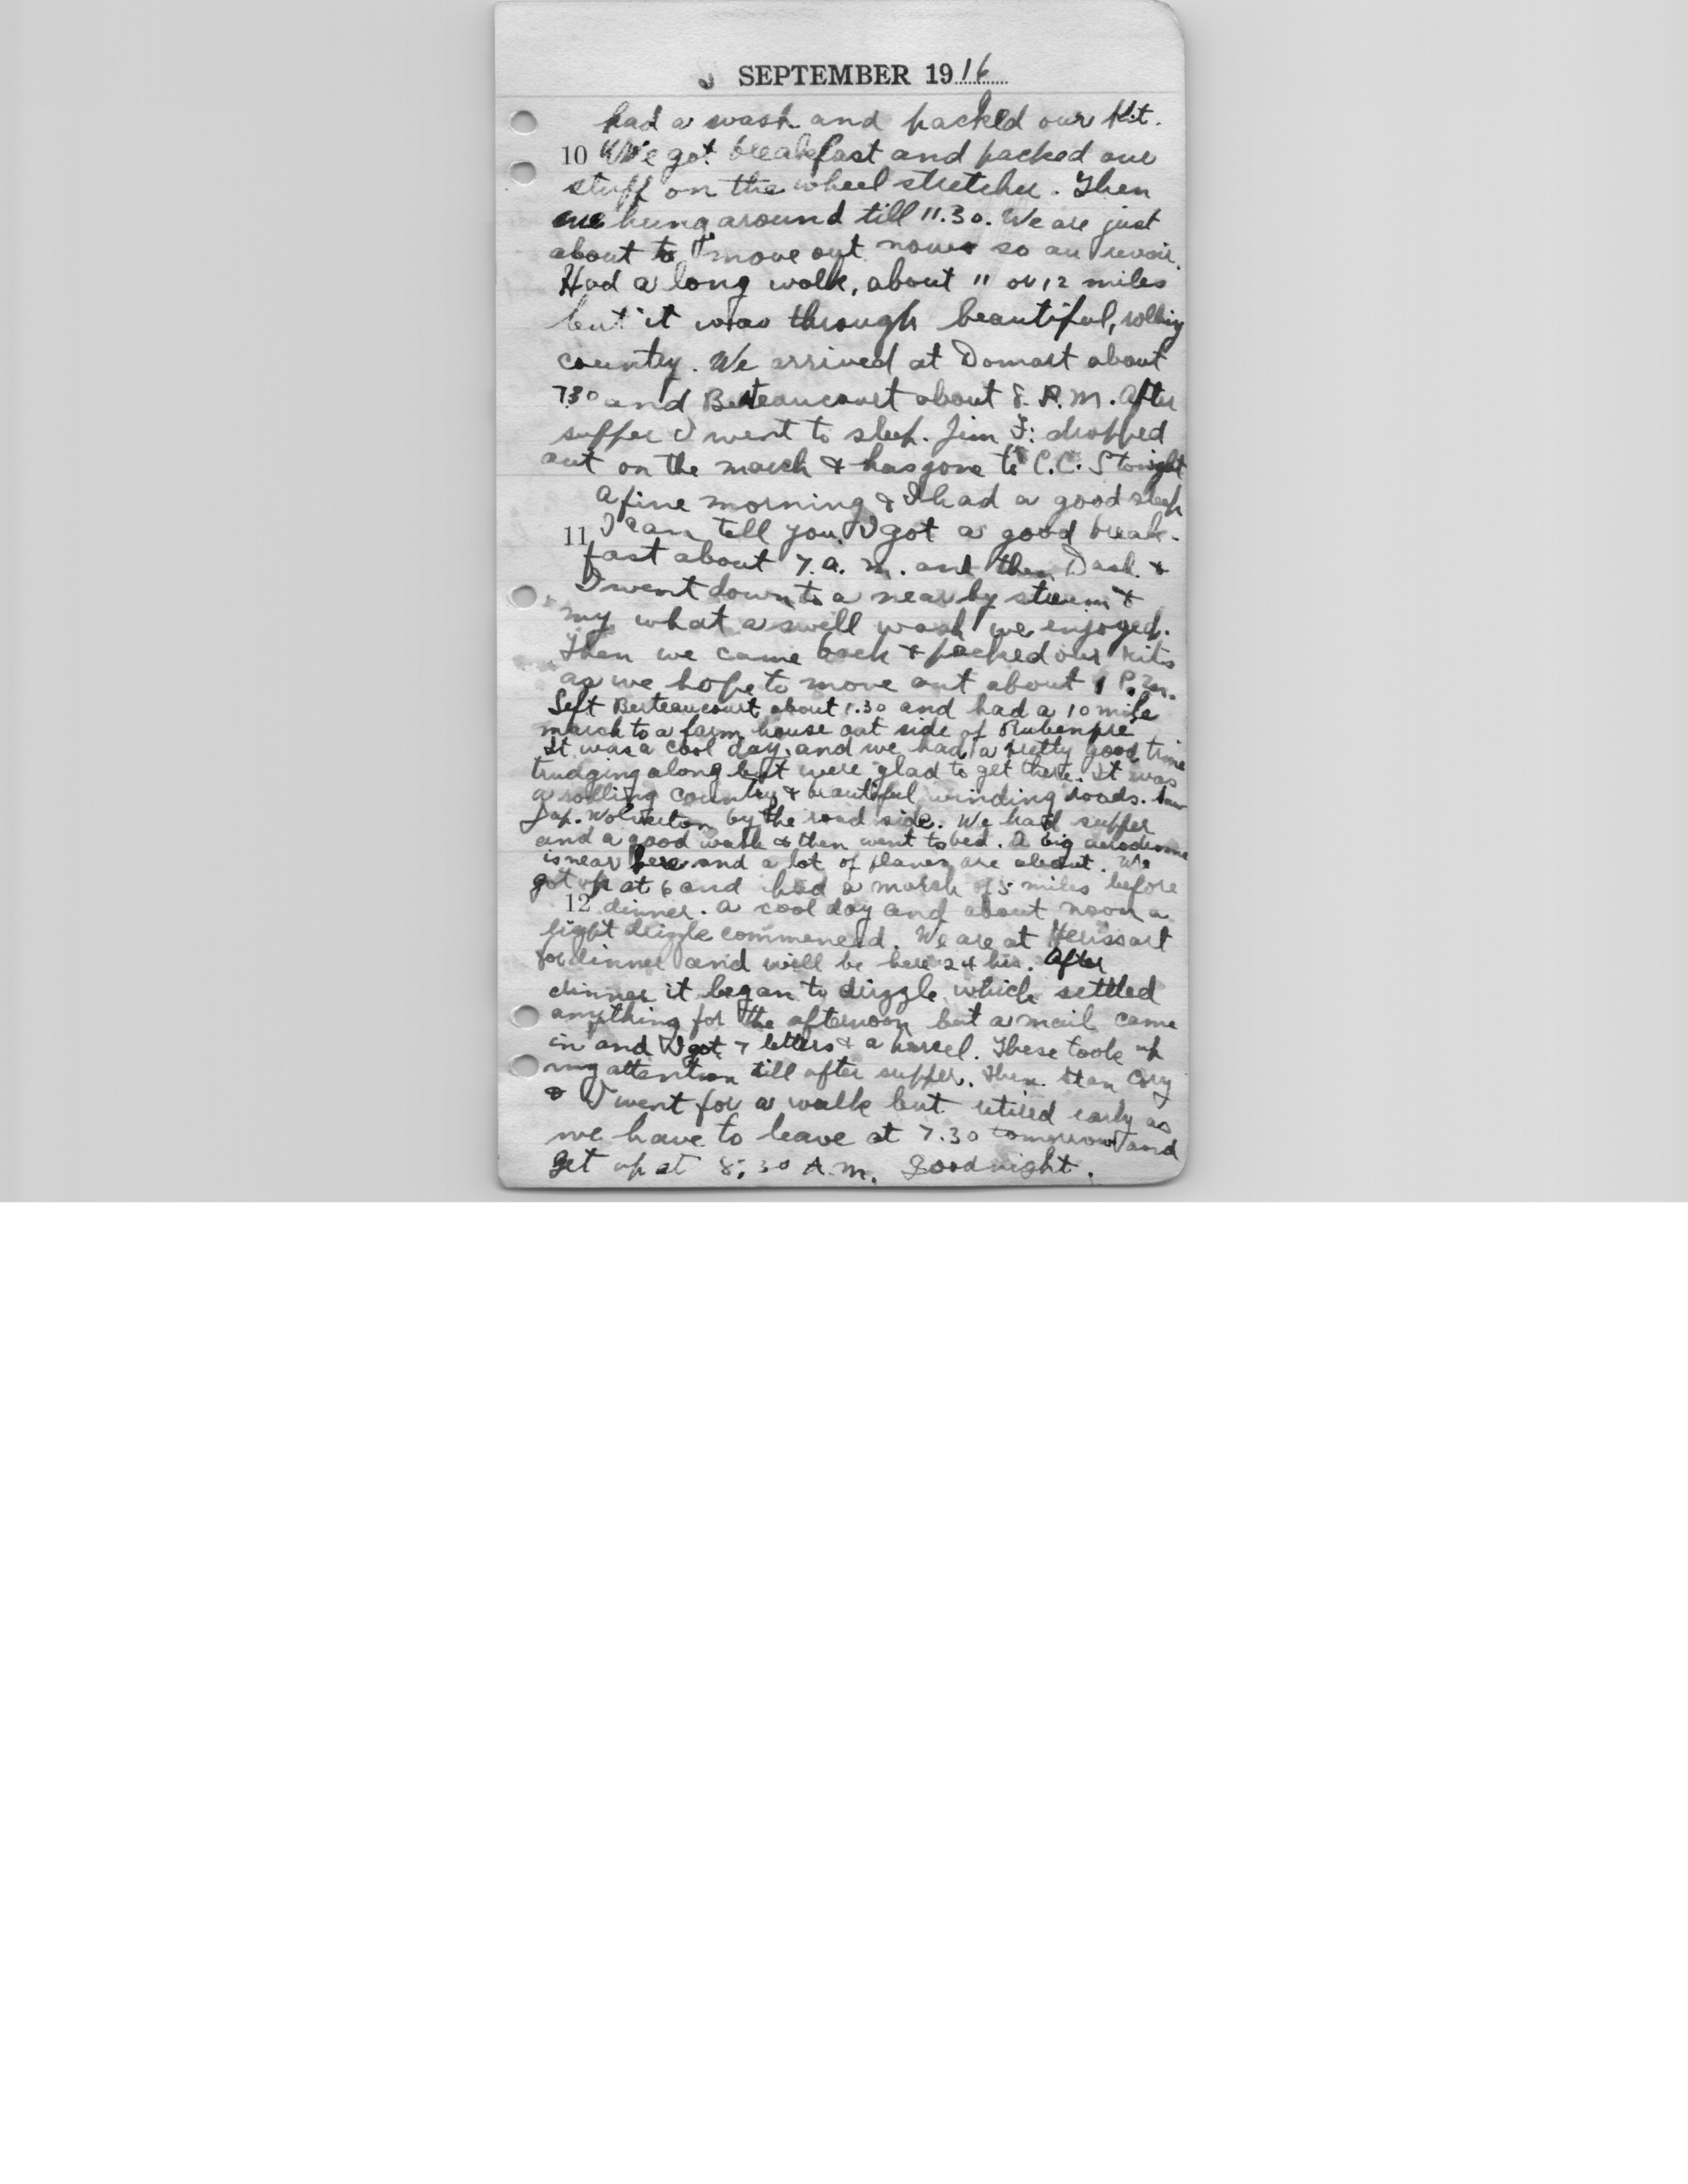 SEPTEMBER 1916
had a wash and packed our kit.
10 We got breakfast and packed our
stuff on the wheel stretcher. Then
we hung around till 11.30. We are just
about to move out now so au revoir.
Had a long walk, about 11 or 12 miles
but it was through beautiful, rolling
country. We arrived at Domart about
730 and Berteaucourt about 8. P.M. After
supper I went to sleep. Jim F: dropped
out on the march & has gone to C.C.S tonight
A fine morning & I had a good sleep
11 I can tell you. I got a good break-
fast about 7. a.m. and then Dash &
I went down to a near by stream &
my what a swell wash we enjoyed.
Then we came back & packed our kits
as we hope to move out about 1 P.m.
Left Berteaucourt about 1.30 and had a 10 mile
march to a farm house out side of Rubempre
It was a cool day and we had a pretty good time
trudging along but were glad to get there. It was
a rolling country & beautiful winding roads. Saw
Jap. Wolverton by the road side. We had supper
and a good wash & then went to bed. A big aerodrome
is near here and a lot of planes are about. We
got up at 6 and had a march of 5 miles before
12 dinner. A cool day and about noon a
light drizzle commenced. We are at Herissart
for dinner and will be here 24 hrs. After
dinner it began to drizzle which settled
anything for the afternoon but a mail came
in and I got 7 letters & a parcel. These took up
my attention till after supper. Then Stan Cory
& I went for a walk but retired early as
we have to leave at 7.30 tomorrow and
get up at 8:30 A.m. Goodnight.